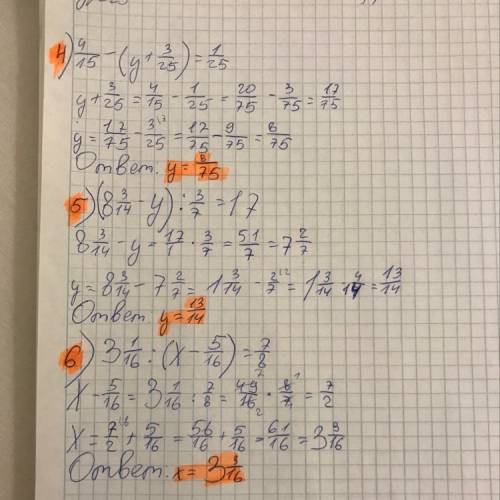 4) 4/15 - (y + 3/25) = 1/25
y + 3/25 = 4/15 - 1/25 = 20/75 - 3/75 = 17/75
y = 17/75 - 3/25 = 17/75 - 9/75 = 8/75
Ответ. y = 8/75
5) (8 3/14 - y) : 3/7 = 17
8 3/14 - y = 17/1 · 3/7 = 51/7 = 7 2/7
y = 8 3/14 - 7 2/7 = 1 3/14 - 2/7 = 1 3/14 - 4/14 = 13/14
Ответ. y = 13/14
6) 3 1/16 : (x - 5/16) = 7/8
x - 5/16 = 3 1/16 : 7/8 = 49/16 · 8/7 = 7/2
x = 7/2 + 5/16 = 56/16 + 5/16 = 61/16 = 3 9/16
Ответ. x = 3 3/16